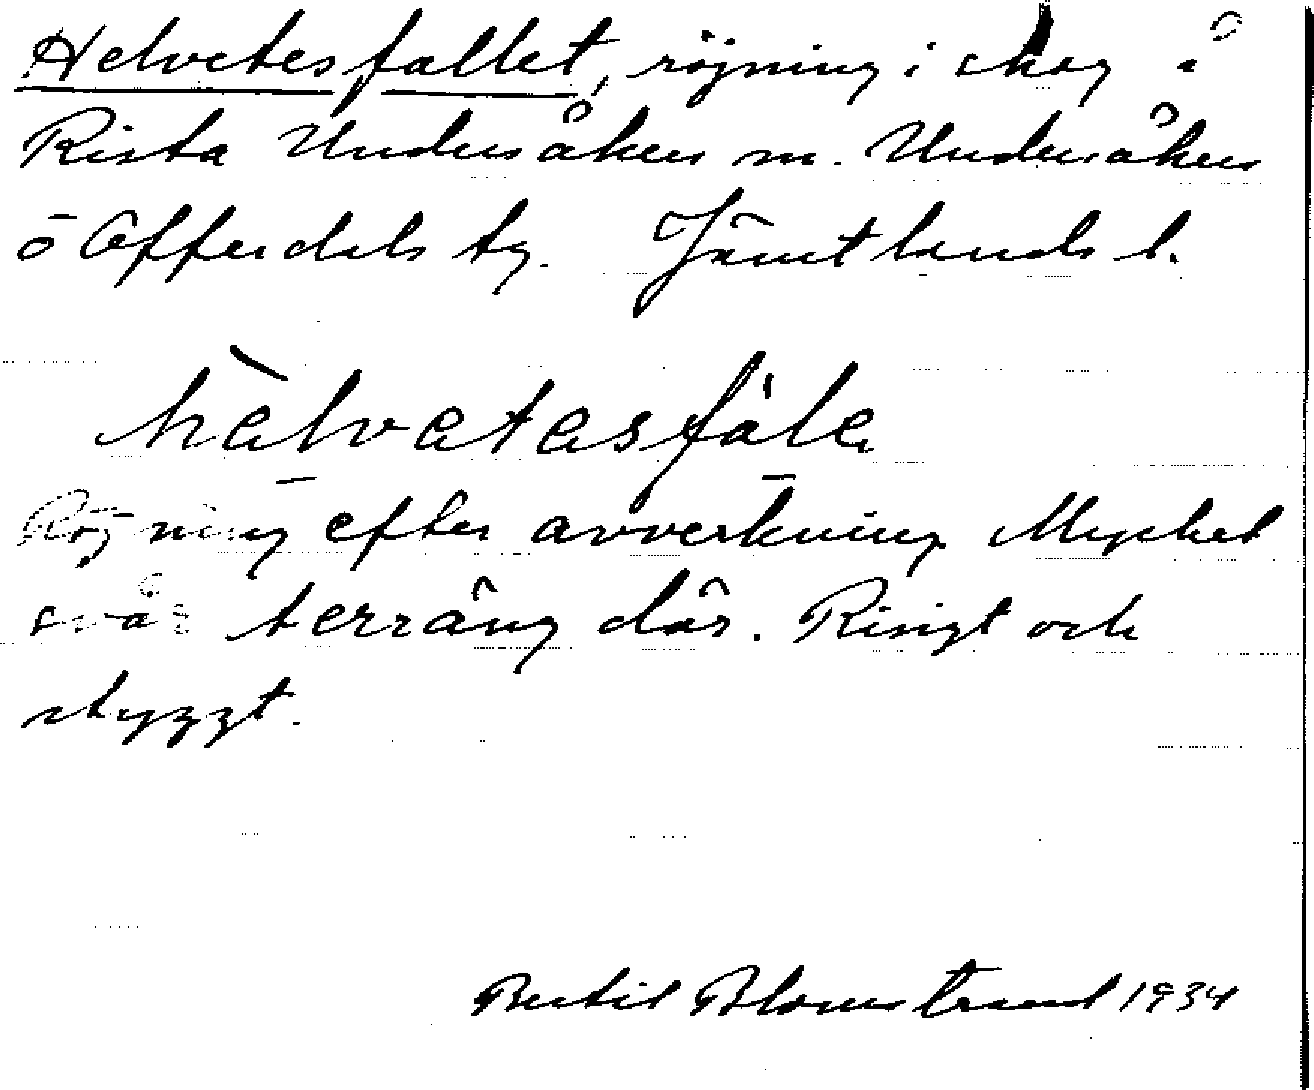 Helvetesfallet, röjning i skog å
Rista Undersåkers sn. Undersåkers
o Offerdals tg. Jämtlands l.
hàlvatasfàla
Röjning efter avverkning. Mycket
svår terräng där. Risigt och
styggt.
Bertil Blomstrand 1934